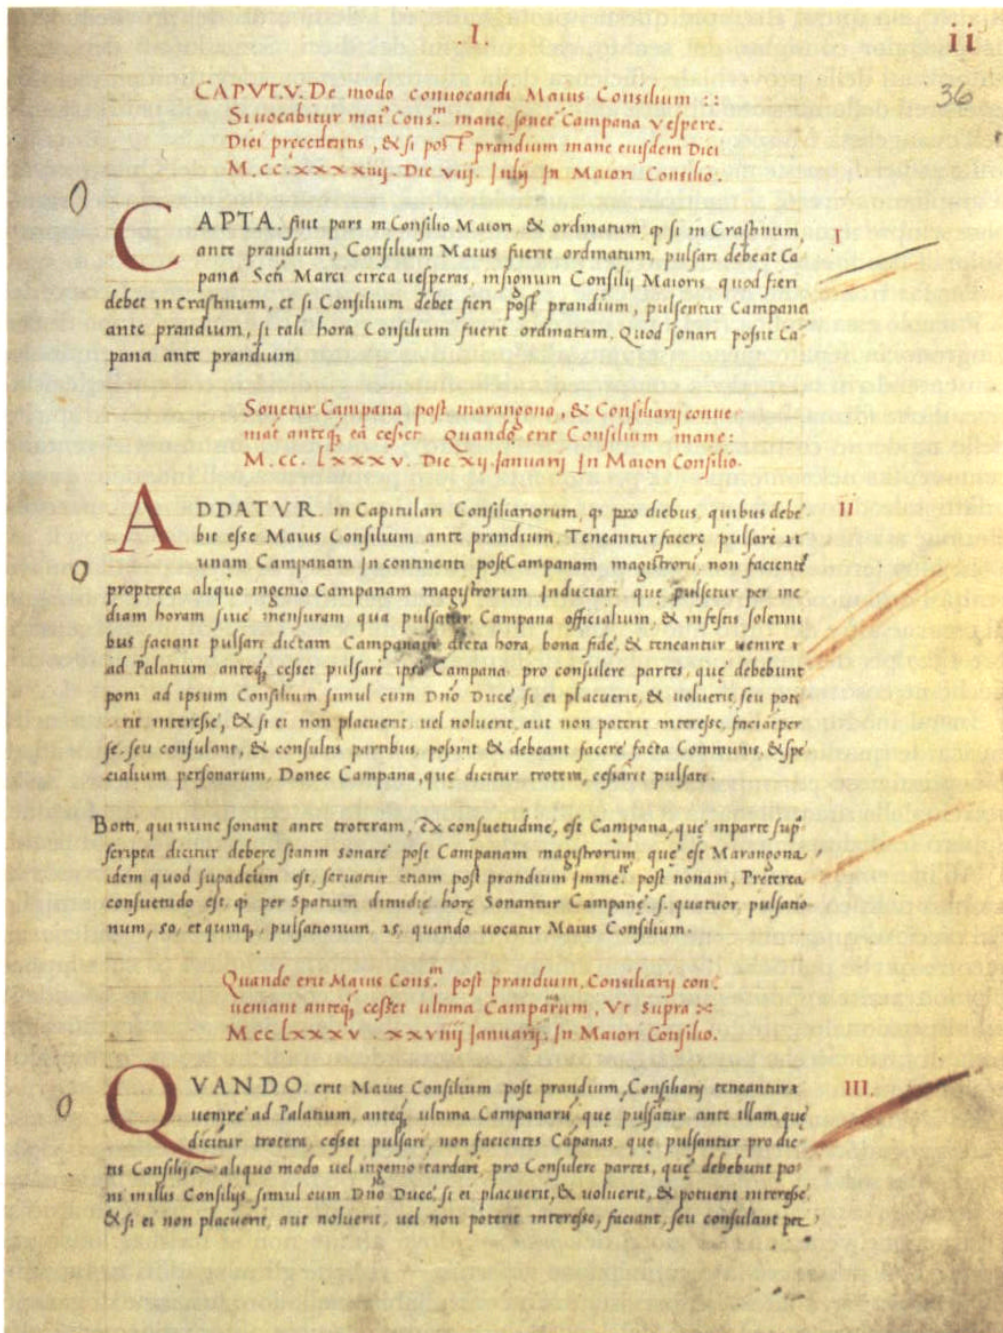 I.
ii
36
CAPVT.V. De modo convocandi Maius Consilium ::
Si vocabitur mai9 Cons.m mane, sonet Campana vespere.
Diei precedentis, & si post prandium mane eiusdem Diei
M.CC.XXXXiiij. Die viij. Iulij In Maiori Consilio.
CAPTA. fuit pars in Consilio Maiori & ordinatum, qp si in Crastinum,
I
ante prandium, Consilium Maius fuerit ordinatum, pulsari debeat Ca
pana Scti Marci circa uesperas, insignum Consilij Maioris quod fieri
debet in Crastinum, et si Consilium debet fieri post prandium, pulsentur Campana
ante prandium, si tali hora Consilium fuerit ordinatum. Quod sonari possit Ca
pana ante prandium
Sonetur Campana post marangona, & Consiliarij conue
niat anteq; ea cesset. Quando erit Consilium mane:
M.CC. lxxxv. Die xij. Januarij In Maiori Consilio.
ADDATVR. in Capitulari Consiliariorum, qp pro diebus, quibus debe
ii
bit esse Maius Consilium ante prandium. Teneantur facere pulsari
unam Campanam In continenti post Campanam magistroru, non faciente
propterea aliquo ingenio Campanam magistrorum Induciari. que pulsetur per me
diam horam siue mensuram qua pulsatur Campana officialium, & in festis solenni
bus faciant pulsari dictam Campanam dicta hora, bona fide, & teneantur uenire
ad Palatium anteq; cesset pulsari ipsa Campana pro consulere partes, que debebunt
poni ad ipsum Consilium simul cum Dno Duce si ei placuerit, & uoluerit, seu pote
rit interesse, & si ei non placuerit, uel noluerit, aut non poterit interesse, faciat per
se. seu consulant, & consultis partibus, possint & debeant facere facta Communis, & spe
cialium personarum, Donec Campana, que dicitur trotera, cessarit pulsari.
Botti, qui nunc sonant ante troteram, ex consuetudine, est Campana, que in parte sup
scripta dicitur debere statim sonare post Campanam magistrorum que est Marangona
idem quod supadcum est, seruatur etiam post prandium Imme.te post nonam, Preterea
consuetudo est, qp per spatium dimidie hore Sonantur Campane. s. quatuor, pulsatio
num, 50, et quinq; pulsationum. 25, quando uocatur Maius Consilium.
Quando erit Maius Cons.m post prandium, Consiliarij con
ueniant anteq; cesset ultima Campanarum, Vt supra
M.CC lxxxv. xxviiij Januarij. In Maiori Consilio.
QVANDO erit Maius Consilium post prandium, Consiliarij teneantur
III.
uenire ad Palatium, anteq; ultima Campanaru, que pulsatur ante illam que
dicitur trotera, cesset pulsari, non facientes Capanas, que pulsantur pro dic
tis Consilijs aliquo modo uel ingenio tardari, pro Consulere partes, que debebunt po
ni in illis Consilijs, simul cum Dno Duce. si ei placuerit, & uoluerit, & potuerit interesse
& si ei non placuerit, aut noluerit, uel non poterit interesse, faciant, seu consulant per